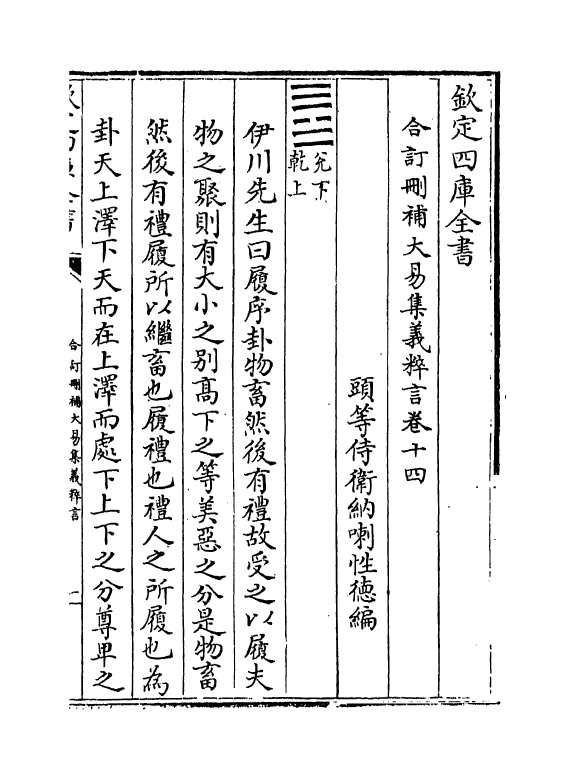 欽定四庫全書
合訂刪補大易集義粹言卷十四
頭等侍衛納喇性德編
兌下
乾上
伊川先生曰履序卦物畜然後有禮故受之以履夫
物之聚則有大小之別髙下之等美惡之分是物畜
然後有禮履所以繼畜也履禮也禮人之所履也為
卦天上澤下天而在上澤而處下上下之分尊卑之
合訂刪補大易集義粹言